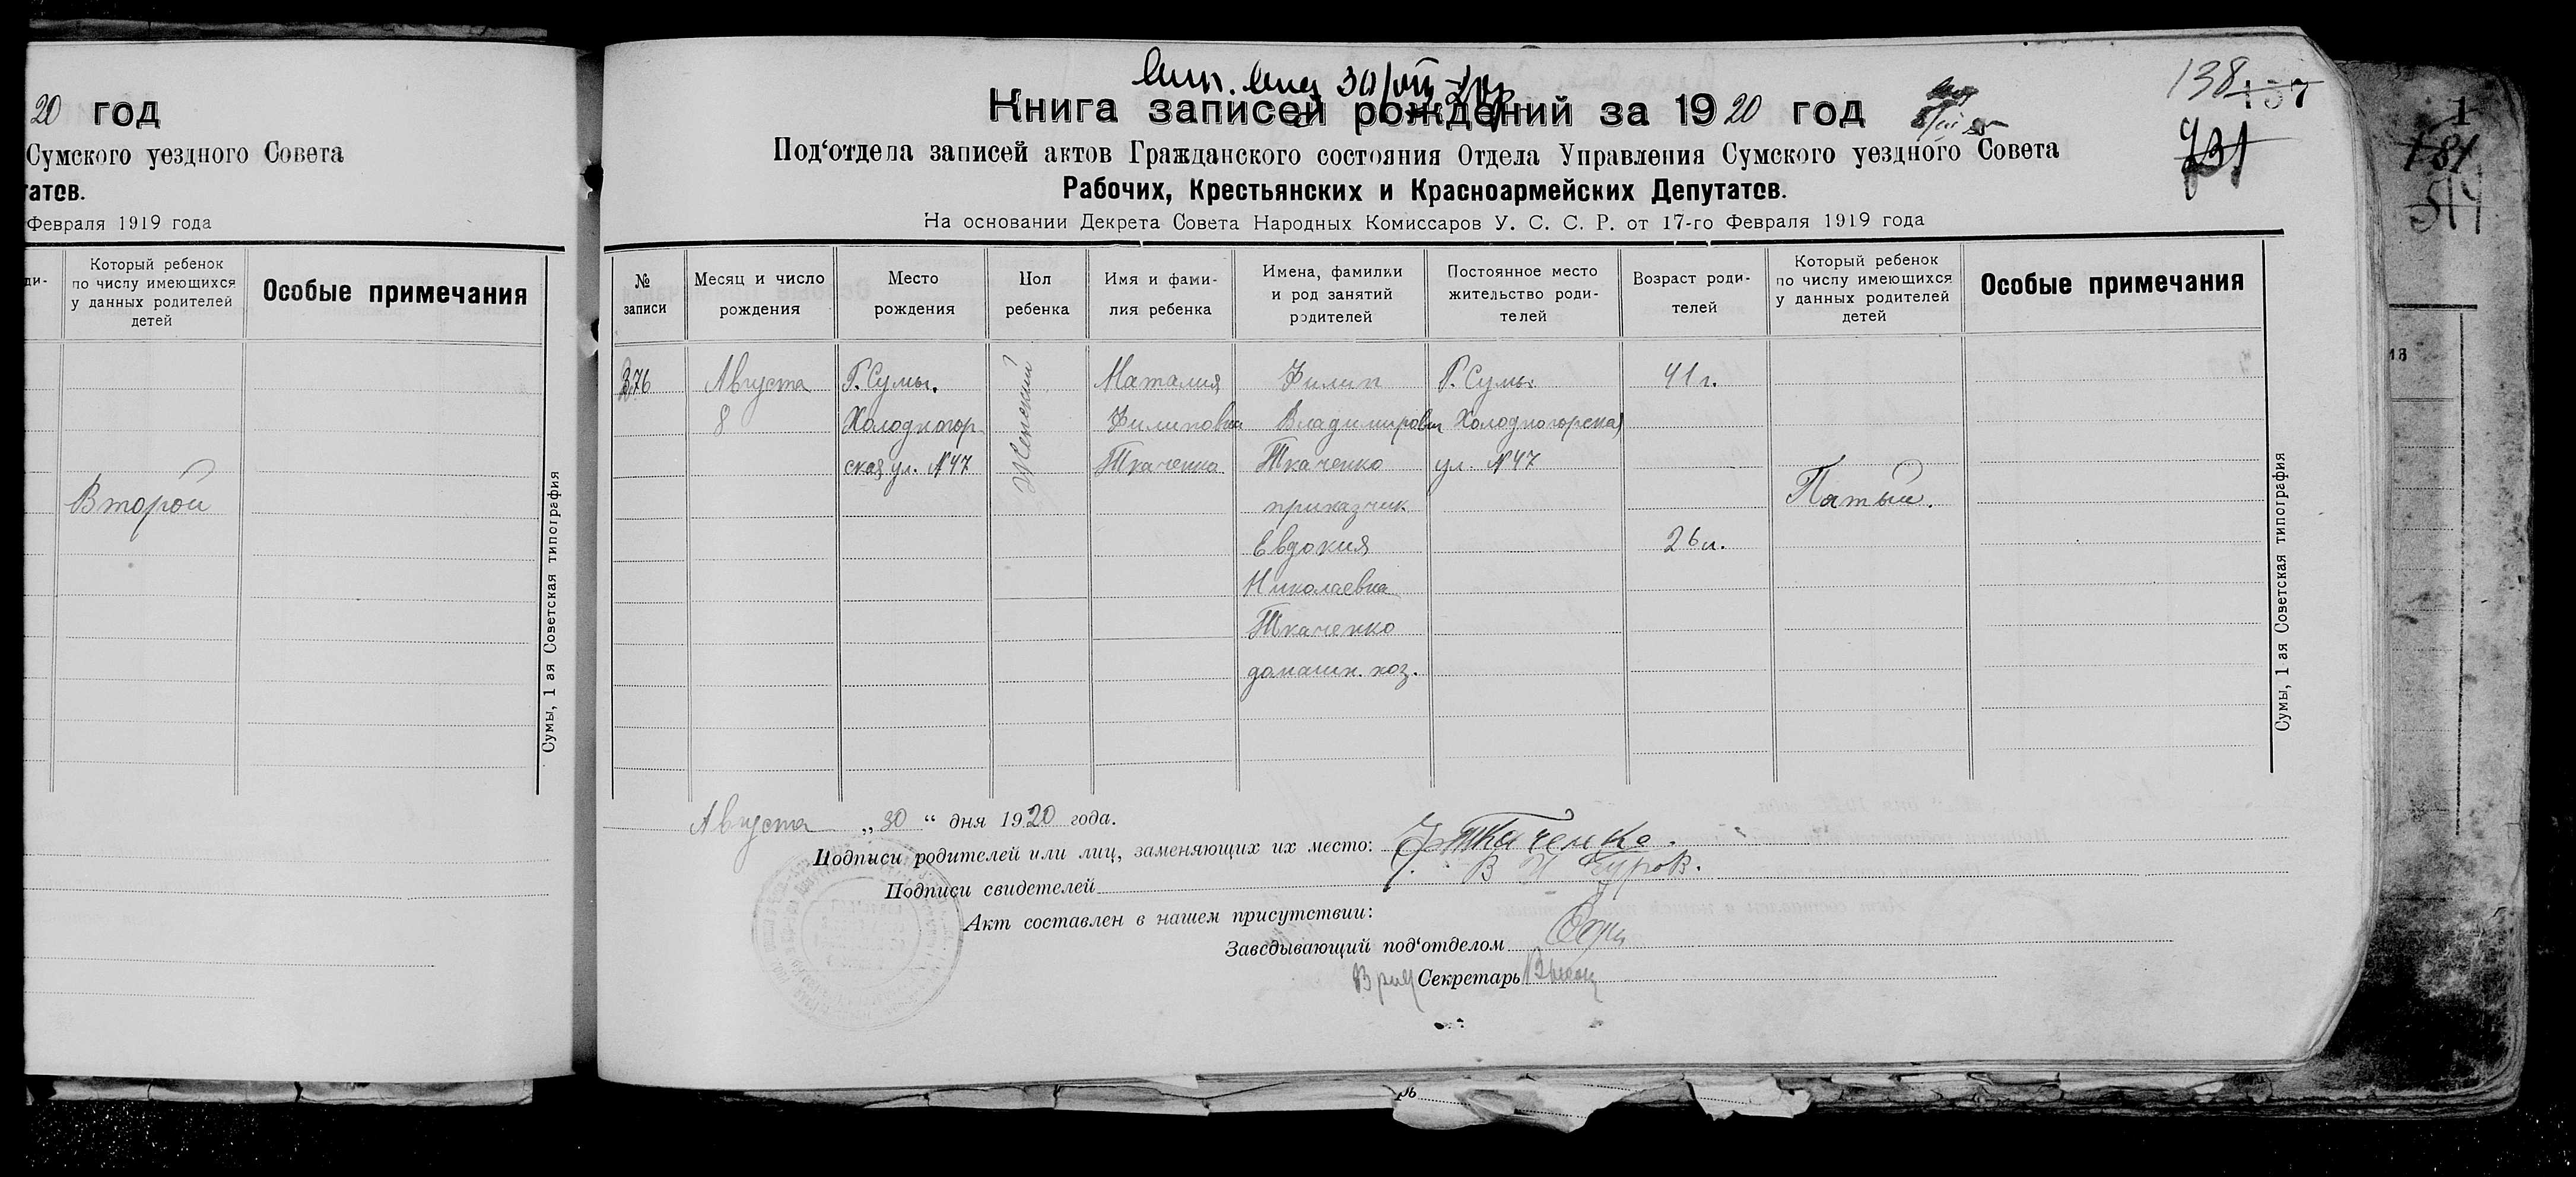 20 год
Сумского уездного Совета
татов.
Февраля 1919 года
Который ребенок
по числу имеющихся
у данных родителей
детей
Особые примечания
Второй
Сумы, 1 ая Советская типография
30/VIII
138
137
Книга записей рождений за 1920 год
Под‘отдела записей актов Гражданского состояния Отдела Управления Сумского уездного Совета
Рабочих, Крестьянских и Красноармейских Депутатов.
На основании Декрета Совета Народных Комиссаров У. С. С. Р. от 17-го Февраля 1919 года
№
записи
Месяц и число
рождения
Место
рождения
Пол
ребенка
Имя и фами-
лия ребенка
Имена, фамилии
и род занятий
родителей
Постоянное место
жительство роди-
телей
Возраст роди-
телей
Который ребенок
по числу имеющихся
у данных родителей
детей
Особые примечания
376
Августа
8
Г. Сумы.
Холодногор
ская ул. №47
Женский
Наталия
Филиповна
Ткаченко
Филип
Владимирович
Ткаченко
приказчик
Евдокия
Николаевна
Ткаченко
домашн. хоз.
Г. Сумы
Холодногорская
ул. №47
41 г.
26 л.
Пятый.
Сумы, 1 ая Советская типография
Августа „30“ дня 1920 года.
Подписи родителей или лиц, заменяющих их место: Ф Ткаченко.
Подписи свидетелей
Акт составлен в нашем присутствии:
Заведывающий под‘отделом
Врид Секретарь
181